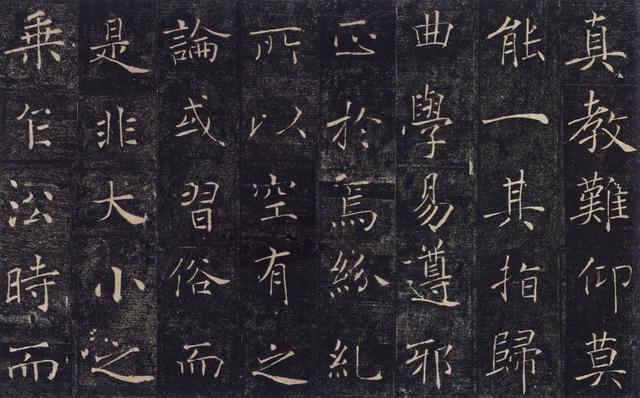 真教難仰莫
能一其指歸
曲學易遵邪
正於焉紛糺
所以空有之
論或習俗而
是非大小之
乘乍沿時而